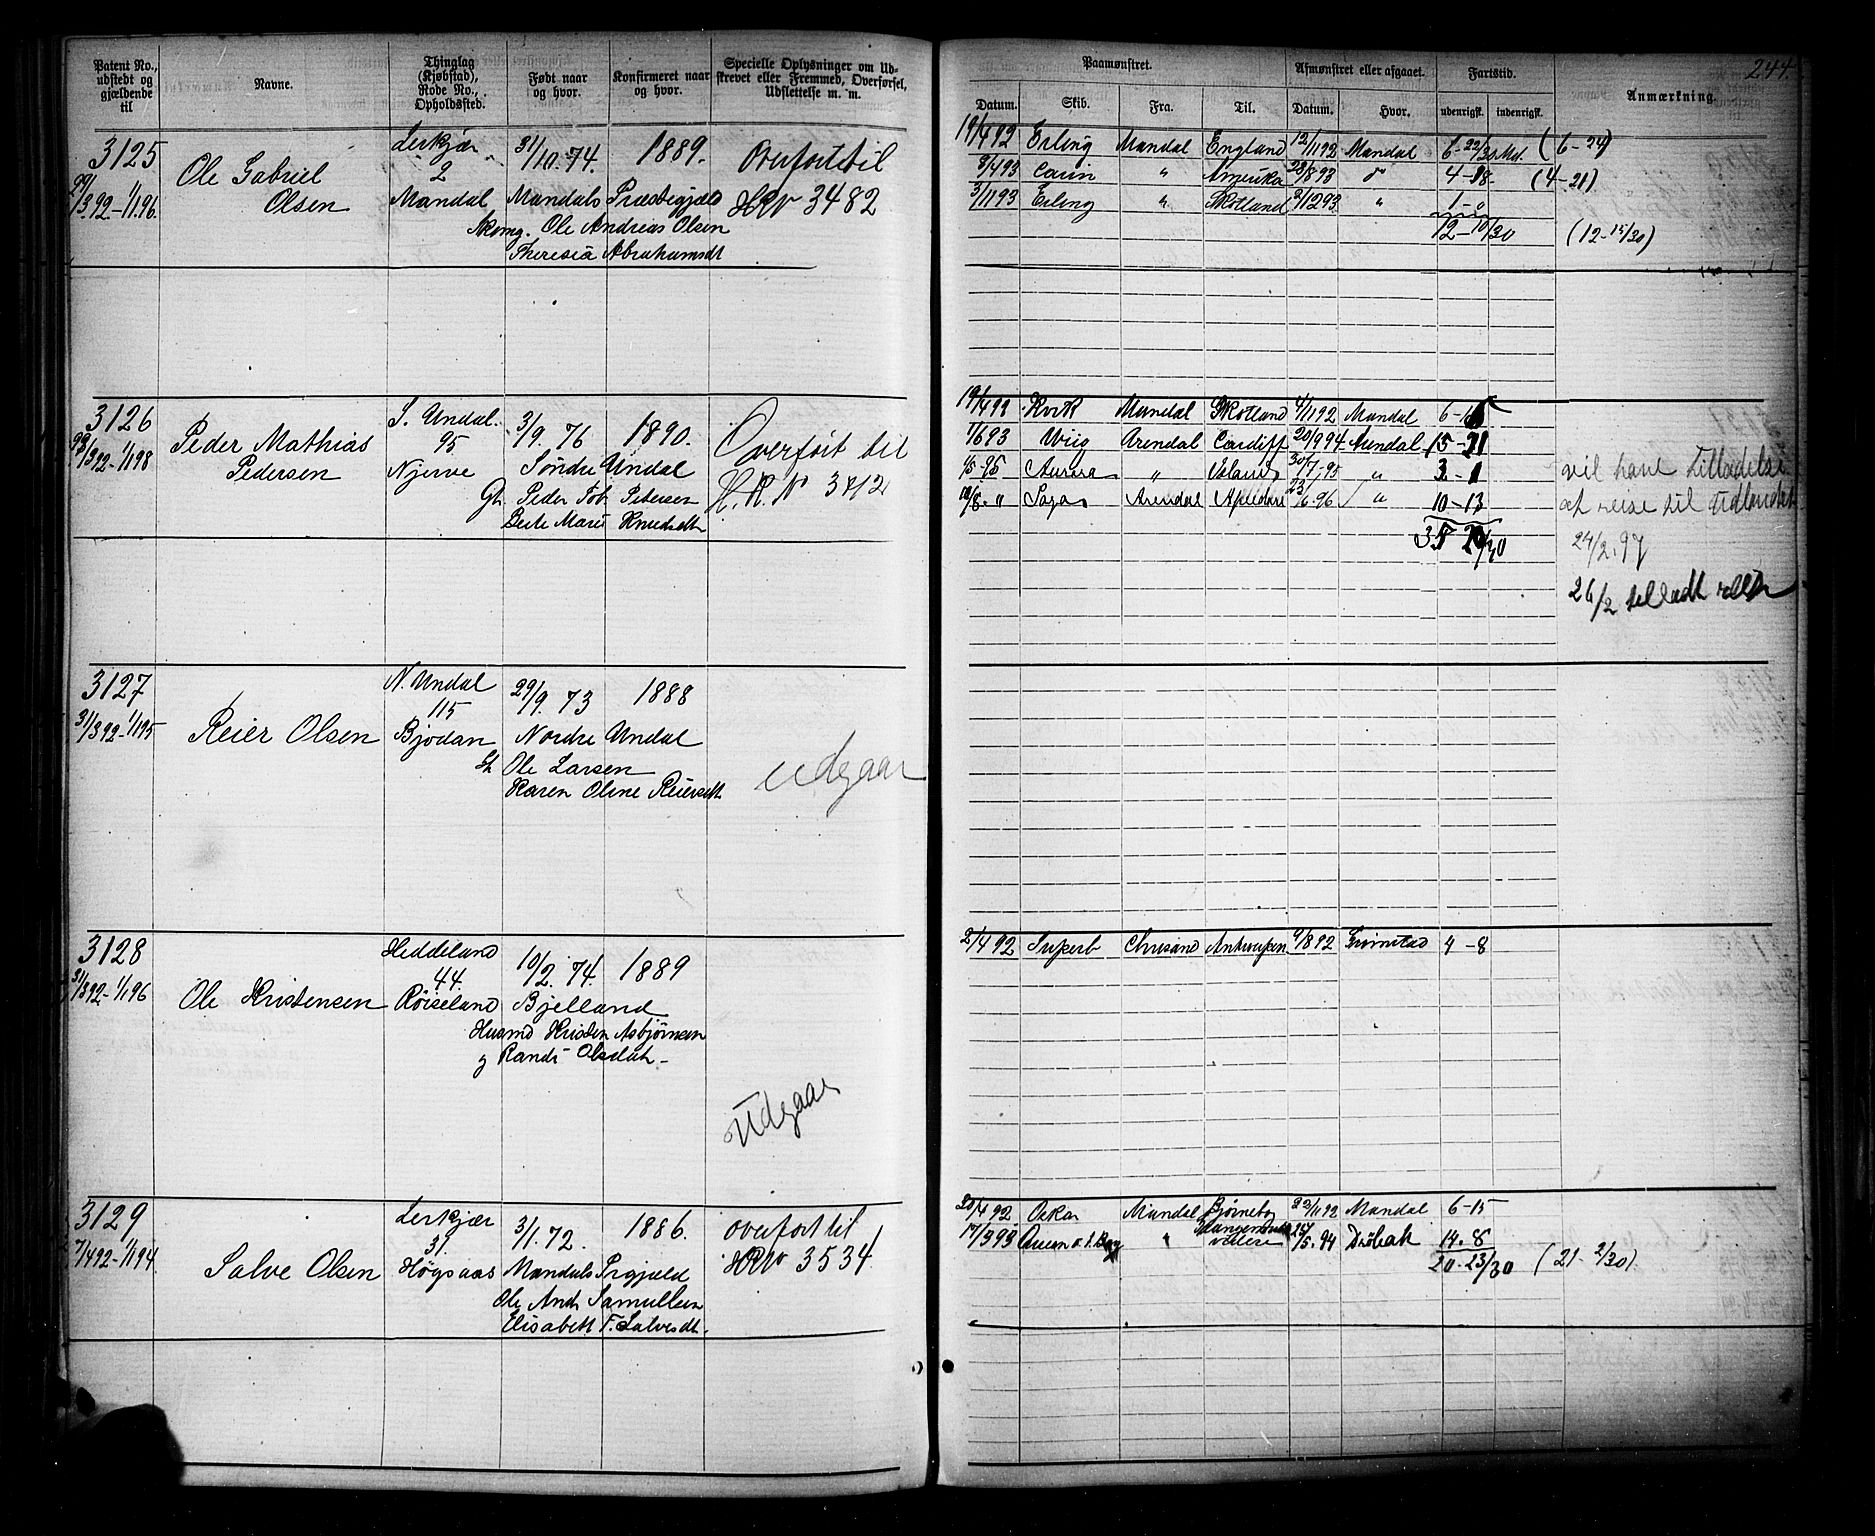 244.
Patent No., udstedt og gjældende til
Navne.
Thinglag (Kjøbstad), Rode No., Opholdssted.
Født naar og hvor.
Konfirmeret naar og hvor.
Specielle Oplysninger om Udskrevet eller Fremmed, Overførsel, Udslettelse m. m.
Paamønstret.
Afmønstret eller afgaaet.
Fartstid.
Anmærkning.
Datum. Skib. Fra. Til. Datum. Hvor. udenrigsk. indenrigsk.
3125 Lerkjær 31/10.74. 1889. Overført til
Ole Gabriel 2
29/3.92-1/1.96. Olsen Mandal Mandals Præstegjeld HRN 3482
Ole Andreas Olsen
Theresia Abrahamsdt
19/4 92 Erling Mandal England 12/11 92 Mandal 6-22/30 Md. (6-24)
8/4 93 Carin " Amerika 28/8 93 do 4-18. (4-21)
3/11 93 Erling " Skotland 3/12 93 " 1-0
12-10/30 (12-15/30)
3126 S. Undal. 3/9.76 1890. Overført til
Peder Mathias 95
Pedersen Njerve Søndre Undal H.R.N 3412
Gb. Peder Tob. Petersen
Berte Marie Knudsdt
19/4 92 Kvik Mandal Skotland 4/11 92 Mandal
1/6 93 Wiig Arendal Cardiff 20/9 94 Arendal 15-21
Aurora " Island 30/7.95 "
Saga Arendal " 10-13
vil have tilladelse
at reise til Udlandet
24/2.97
26/2 tilladt
3127 N. Undal 29/9.73 1888
115
31/3 92-1/1 95 Reier Olsen Bjodan Nordre Undal
Ole Larsen udgaar
Karen Oline Reiersdt
3128 Heddeland 10/2.74. 1889
44.
31/3 92-1/1 96 Ole Kristensen Røiseland Bjelland
Husmd Kristen Asbjørnsen
g Randi Olsdatt-
Udgaar
2/4 92 Superb Chrsand Antwerpen 9/8 92 Grimstad 4-8
3129 Lerkjær 3/1.72. 1886. overført til
31.
7/4 92-1/1 94 Salve Olsen Høgsaas Mandals Prgjeld HRN 3534
Ole And. Samuelsen
Elisabeth T. Salvesdt.
20/4 92 Oskar Mandal Bjørneborg 22/11 92 Mandal 6-15
17/3 93 " 24/5.94 Drøbak 14.8
20.23/30 (21-2/30)